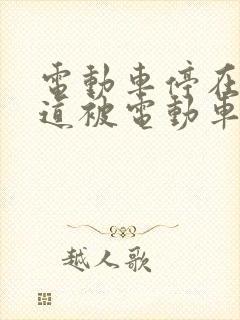 電動車停在
道被電動車
越人歌